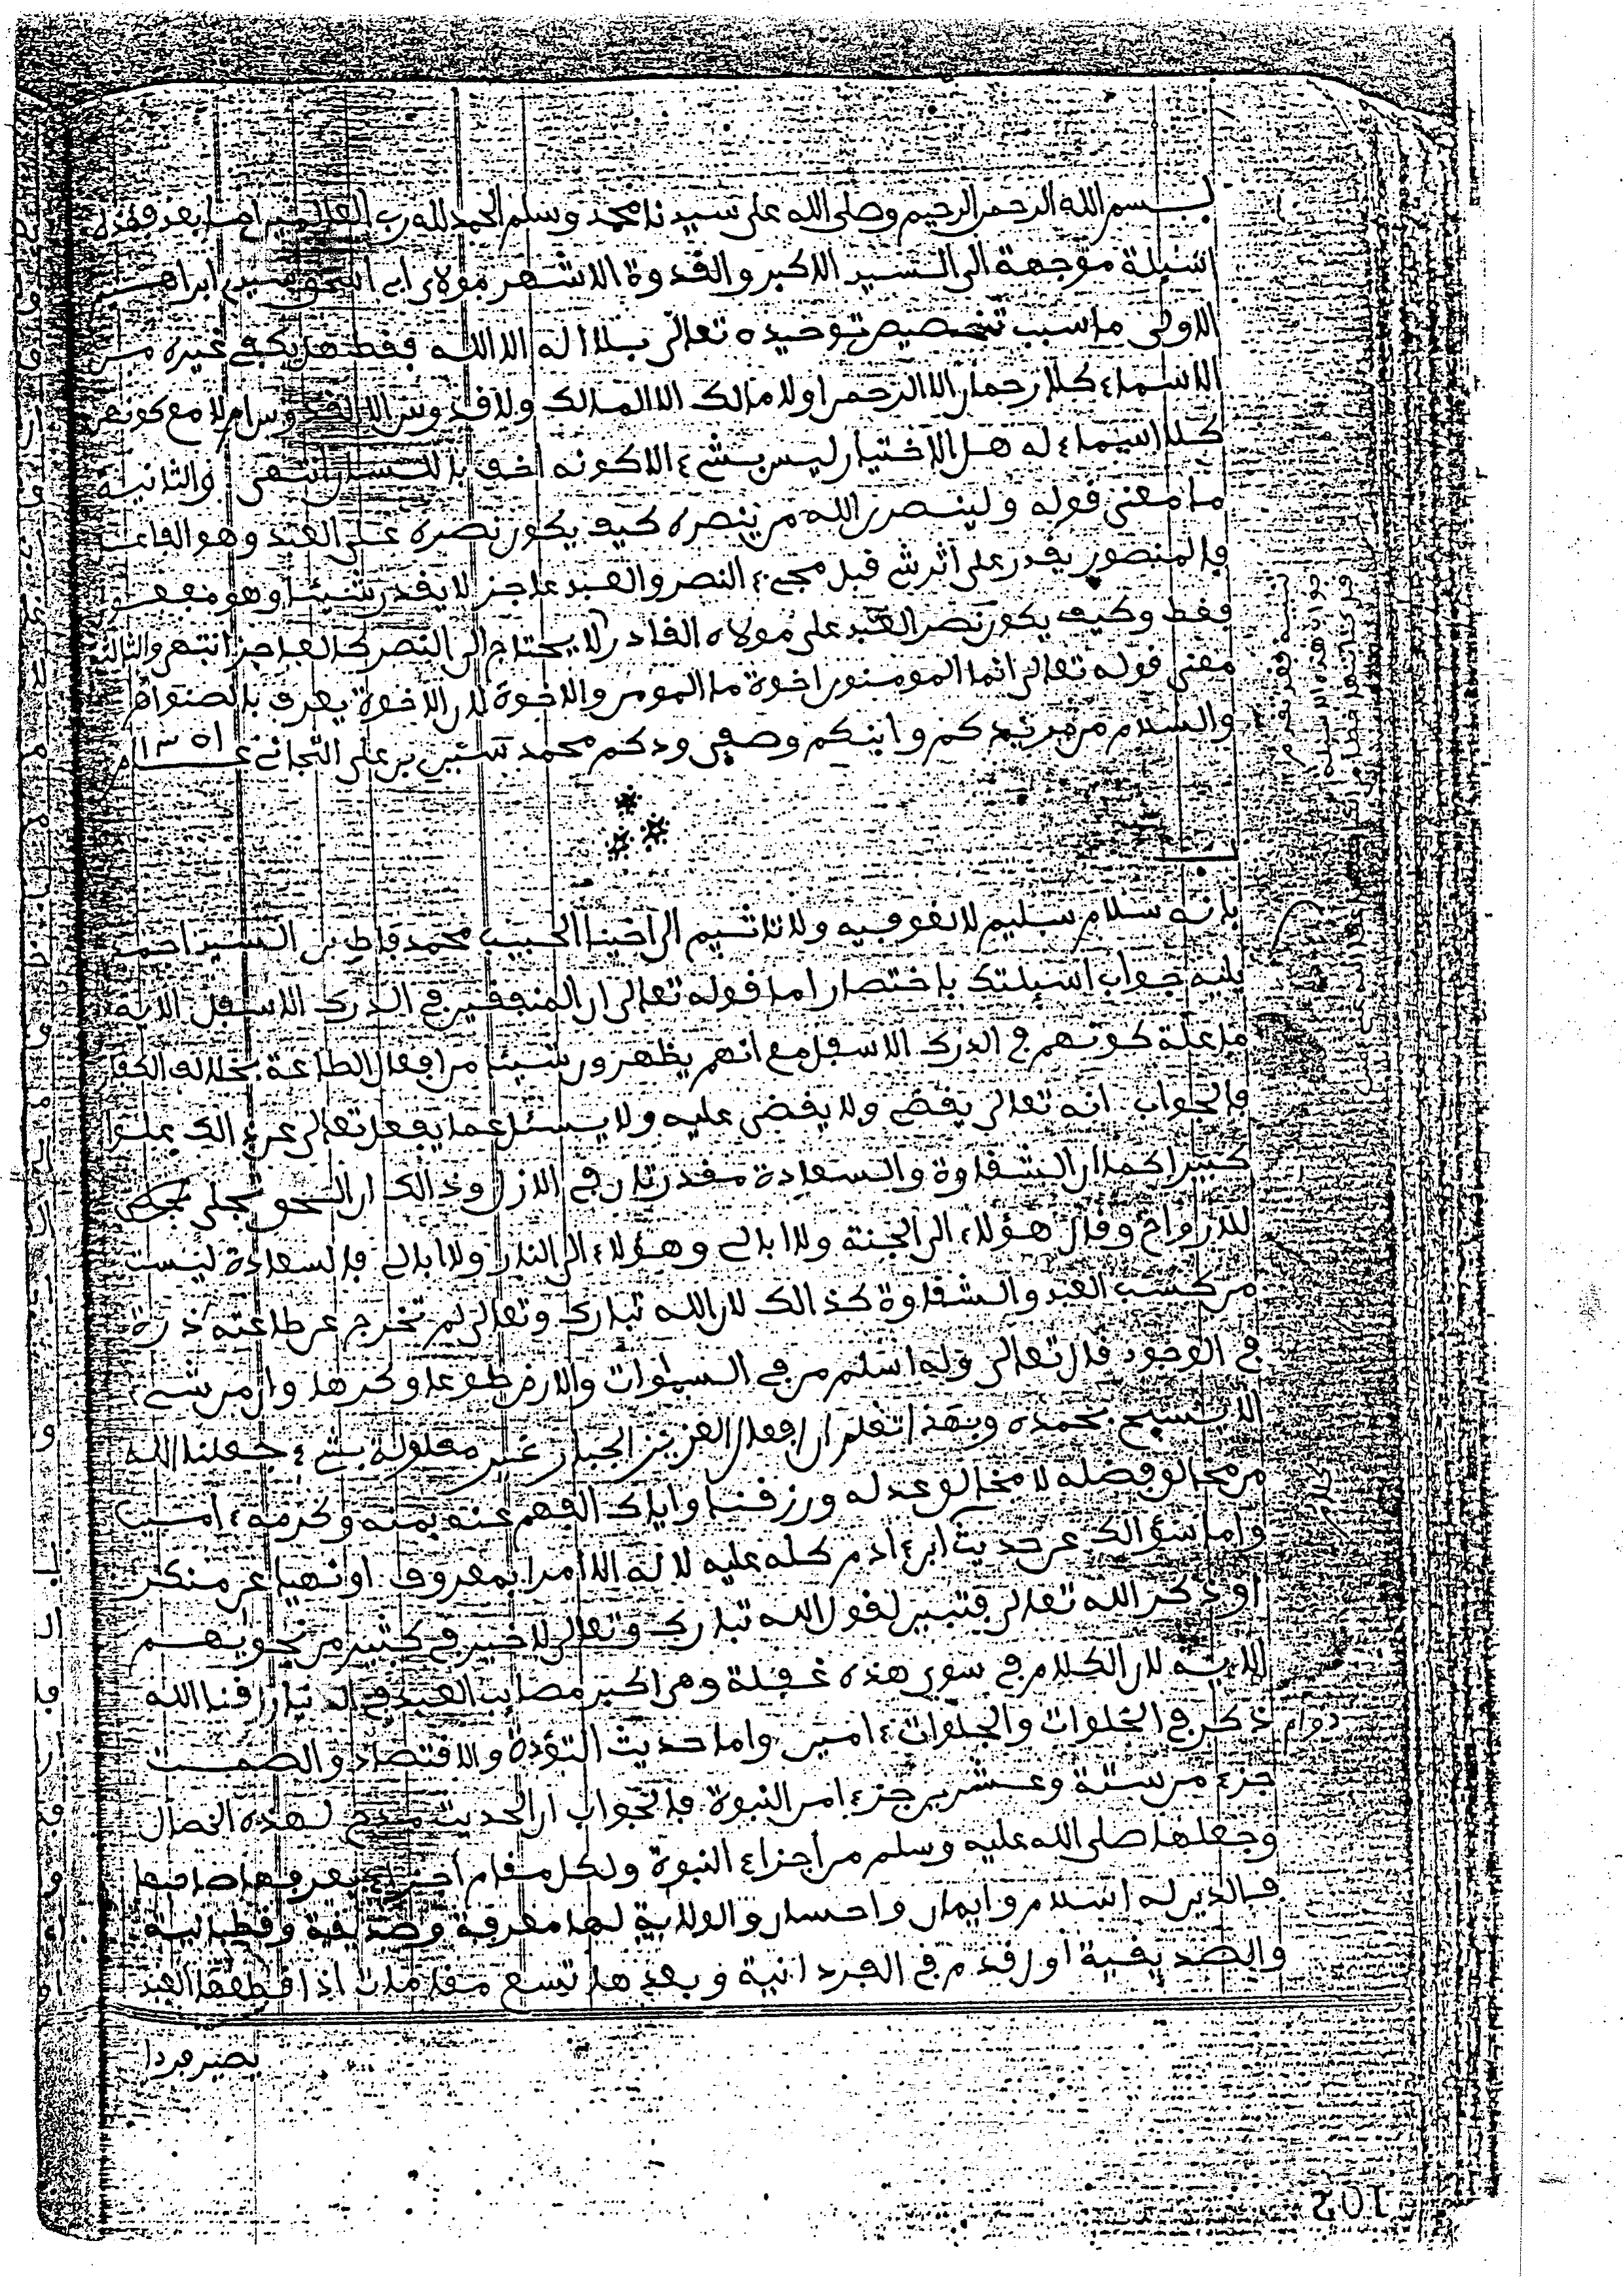 بسم الله الرحمن الرحيم وصلى الله على سيدنا محمد وسلم الحمد لله رب العالمين اما بعد فهذه
اسئلة موجهة الى السيد الاكبر والقدوة الاشهر مولاي ابي اسحق سيدي ابراهيم
الاولى ما سبب تخصيص توحيده تعالى بلا اله الا الله فقط هل يكفي غيره من
الاسماء كلا رحمان الا الرحمن او لا مالك الا المالك ولا قدوس الا القدوس ام لا مع كونهن
كلا اسماء له هل الاختيار ليس بشيء الا كونه اخف باللسان انتهى والثانية
ما معنى قوله ولينصرن الله من ينصره كيف يكون نصره على العبد وهو الفاعل
فالمنصور يقدر على اثر شيء قبل مجيء النصر والعبد عاجز لا يقدر شيئا وهو مفعول
فقط وكيف يكون نصر العبد على مولاه القادر لا يحتاج الى النصر كالعاجز انتهى والثالثة
معنى قوله تعالى انما المومنون اخوة ما المومن والاخوة لان الاخوة يعرف بالصنو ام
والسلام من مريدكم وابنكم وصفي ودكم محمد بن علي التجاني عام ١٣٥١
بانه سلام سليم لا لغو فيه ولا تاثيم الى اخينا الحبيب محمد بن السيد احمد
يليه جواب اسئلتك باختصار اما قوله تعالى ان المنفقين في الدرك الاسفل الاية
ما علة كونهم في الدرك الاسفل مع انهم يظهرون شيئا من افعال الطاعة بخلاف الكفا
فالجواب انه تعالى يقضي ولا يقضى عليه ولا يسئل عما يفعل تعالى عن ذالك علوا
كبيرا كما ان الشقاوة والسعادة مقدرتان في الازل وذالك ان الحق تجلى
للارواح وقال هؤلاء الى الجنة ولا ابالي وهؤلاء الى النار ولا ابالي فالسعادة ليست
من كسب العبد والشقاوة كذالك لان الله تبارك وتعالى لم تخرج عن طاعته ذرة
في الوجود قال تعالى وله اسلم من في السموات والارض طوعا وكرها وان من شيء
الا يسبح بحمده وبهذا تعلم ان افعال العزيز الجبار غير معلولة بشيء جعلنا الله
من مجالي فضله لا مجالي عدله ورزقنا واياك الفهم عنه بمنه وكرمه ءامين
واما سؤالك عن حديث ابن ءادم كله عليه لا له الا امرا بمعروف او نهيا عن منكر
او ذكر الله تعالى فتبيين لقول الله تبارك وتعالى لا خير في كثير من نجويهم
الاية لان الكلام في سوى هذه غفلة وهي اكبر مصائب العبد في الدنيا رزقنا الله
دوام ذكره في الخلوات والجلوات ءامين واما حديث التؤدة والاقتصاد والصمت
جزء من ستة وعشرين جزءا من النبوة فالجواب ان الحديث مدح لهذه الخصال
وجعلها صلى الله عليه وسلم من أجزاء النبوة ولكل مقام أجزاء يعرفها صاحبها
فالدين له اسلام وايمان واحسان والولاية لها معرفة وصديقية وقطبانية
والصديقية اول قدم في الفردانية وبعدها تسع مقامات اذا قطعها العبد
يصير فردا